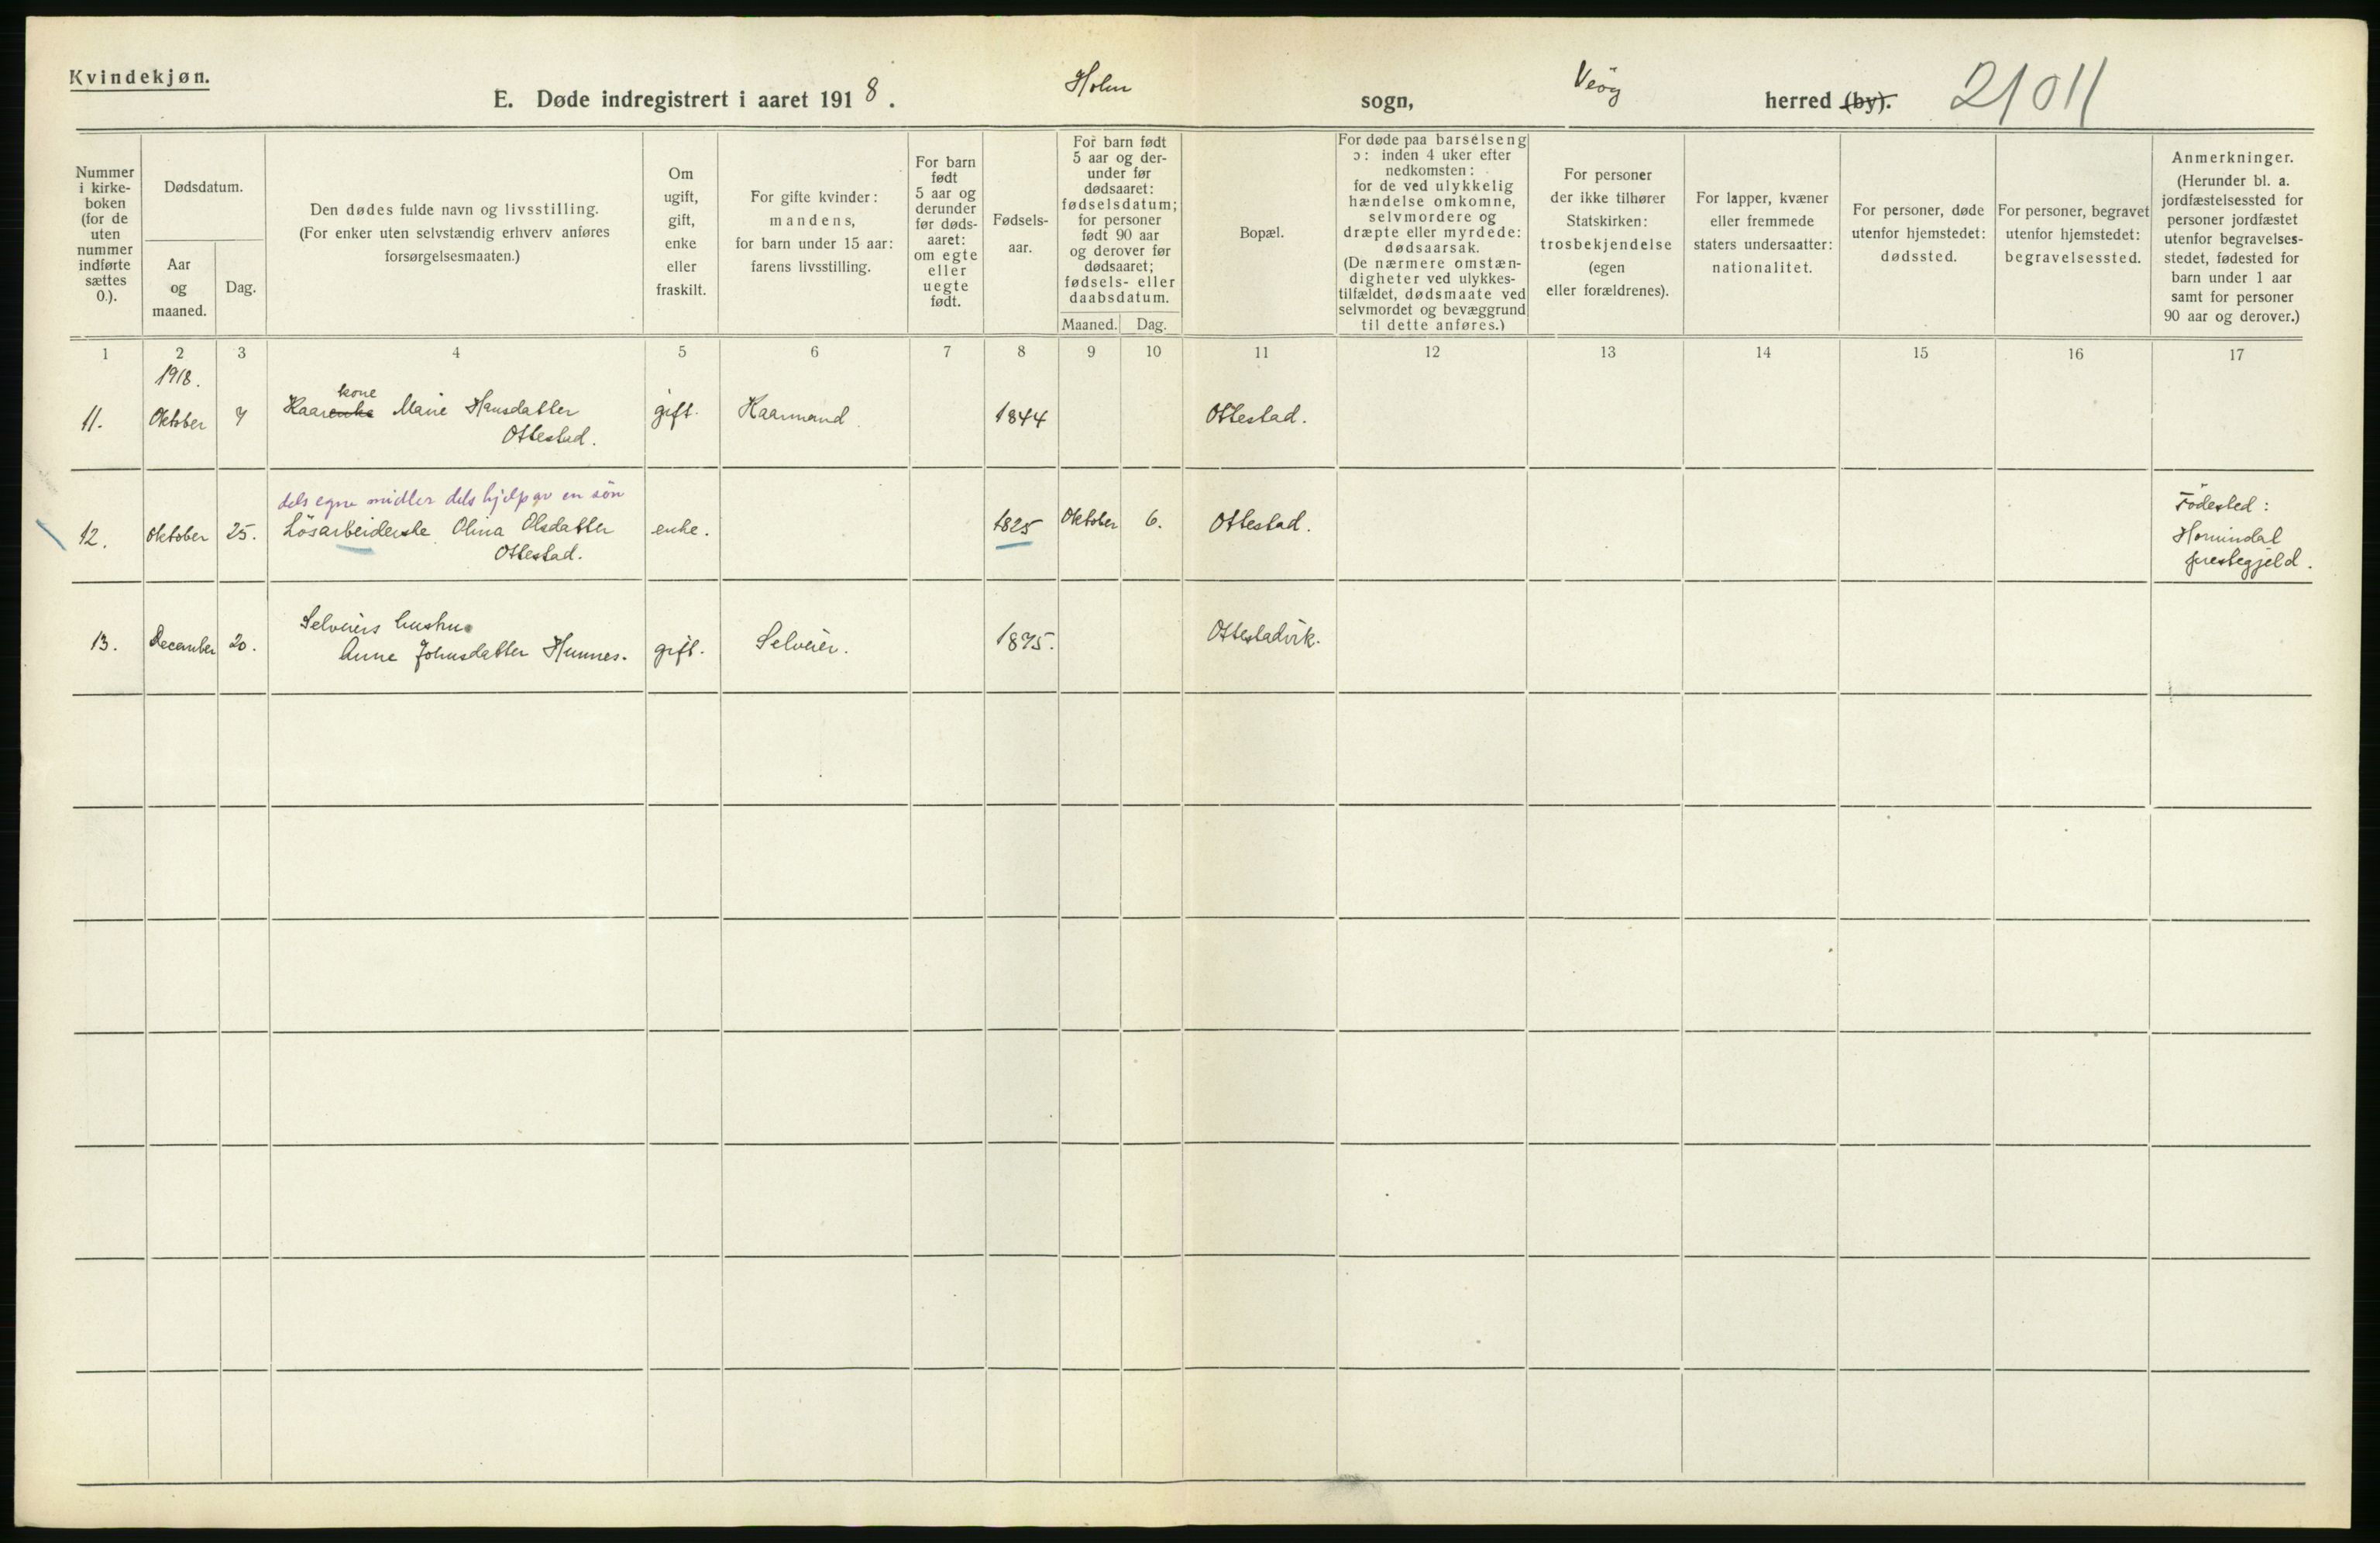 Kvindekjøn.
E. Døde indregistrert i aaret 1918. Holm sogn, Veöy herred (by). 21011
Nummer
i kirke-
boken
(for de
uten
nummer
indførte
sættes
0.).
Dødsdatum.
Aar
og
maaned.
Dag.
Den dødes fulde navn og livsstilling.
(For enker uten selvstændig erhverv anføres
forsørgelsesmaaten.)
Om
ugift,
gift,
enke
eller
fraskilt.
For gifte kvinder:
mandens,
for barn under 15 aar:
farens livsstilling.
For barn
født
5 aar og
derunder
før døds-
aaret:
om egte
eller
uegte
født.
Fødsels-
aar.
For barn født
5 aar og der-
under før
dødsaaret:
fødselsdatum;
for personer
født 90 aar
og derover før
dødsaaret;
fødsels- eller
daabsdatum.
Maaned. Dag.
Bopæl.
For døde paa barselseng
ɔ: inden 4 uker efter
nedkomsten:
for de ved ulykkelig
hændelse omkomne,
selvmordere og
dræpte eller myrdede:
dødsaarsak.
(De nærmere omstæn-
digheter ved ulykkes-
tilfældet, dødsmaate ved
selvmordet og bevæggrund
til dette anføres.)
For personer
der ikke tilhører
Statskirken:
trosbekjendelse
(egen
eller forældrenes).
For lapper, kvæner
eller fremmede
staters undersaatter:
nationalitet.
For personer, døde
utenfor hjemstedet:
dødssted.
For personer, begravet
utenfor hjemstedet:
begravelsessted.
Anmerkninger.
(Herunder bl. a.
jordfæstelsessted for
personer jordfæstet
utenfor begravelses-
stedet, fødested for
barn under 1 aar
samt for personer
90 aar og derover.)
1 2 3 4 5 6 7 8 9 10 11 12 13 14 15 16 17
1918.
kone
11. Oktober 7 Kaarenke Marie Hansdatter gift. Kaarmand. 1844 Ottestad.
Ottestad.
dels egne midler dels hjelp av en sön
12. Oktober 25. Lösarbeiderske Olina Olsdatter enke. 1825 Oktober 6. Ottestad.
Ottestad.
Födested:
Hornindal
prestegjeld.
Selveiers hustru
13. December 20. Anne Johnsdatter Hunnes. gift. Selveier. 1875. Ottestadvik.